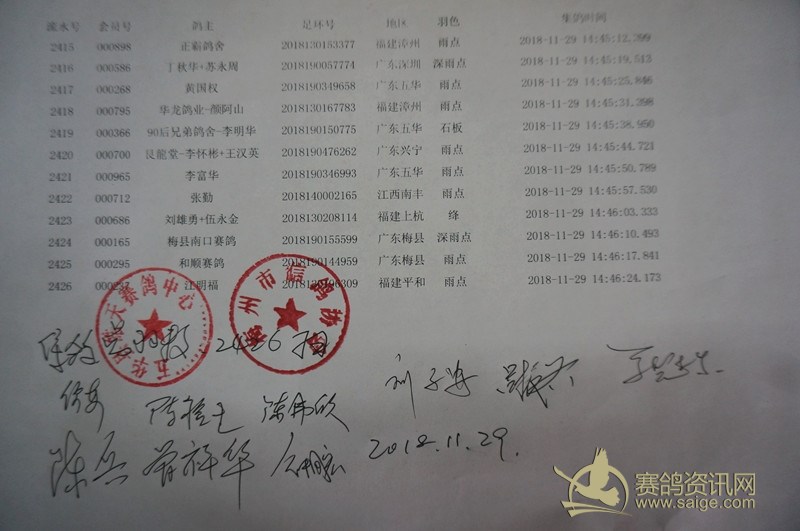 流水号 会员号 鸽主 足环号 地区 羽色 集鸽时间
2415 000898 正霸鸽舍 2018130153377 福建漳州 雨点 2018-11-29 14:45:12.399
2416 000586 丁秋华+苏永周 2018190057774 广东深圳 深雨点 2018-11-29 14:45:19.513
2417 000268 黄国权 2018190349658 广东五华 雨点 2018-11-29 14:45:25.846
2418 000795 华龙鸽业-颜阿山 2018130167783 福建漳州 雨点 2018-11-29 14:45:31.398
2419 000366 90后兄弟鸽舍-李明华 2018190150775 广东五华 石板 2018-11-29 14:45:38.950
2420 000700 艮龍堂-李怀彬+王汉英 2018190476262 广东兴宁 雨点 2018-11-29 14:45:44.721
2421 000965 李富华 2018190346993 广东五华 雨点 2018-11-29 14:45:50.789
2422 000712 张勤 2018140002165 江西南丰 雨点 2018-11-29 14:45:57.530
2423 000686 刘雄勇+伍永金 2018130208114 福建上杭 绛 2018-11-29 14:46:03.333
2424 000165 梅县南口赛鸽 2018190155599 广东梅县 深雨点 2018-11-29 14:46:10.493
2425 000295 和顺赛鸽 2018190144959 广东梅县 雨点 2018-11-29 14:46:17.841
2426 江明福 福建平和 雨点 2018-11-29 14:46:24.173
五华 天赛鸽中心
州市信鸽协
2426 羽
2018.11.29.
赛鸽资讯网
www.saige.com